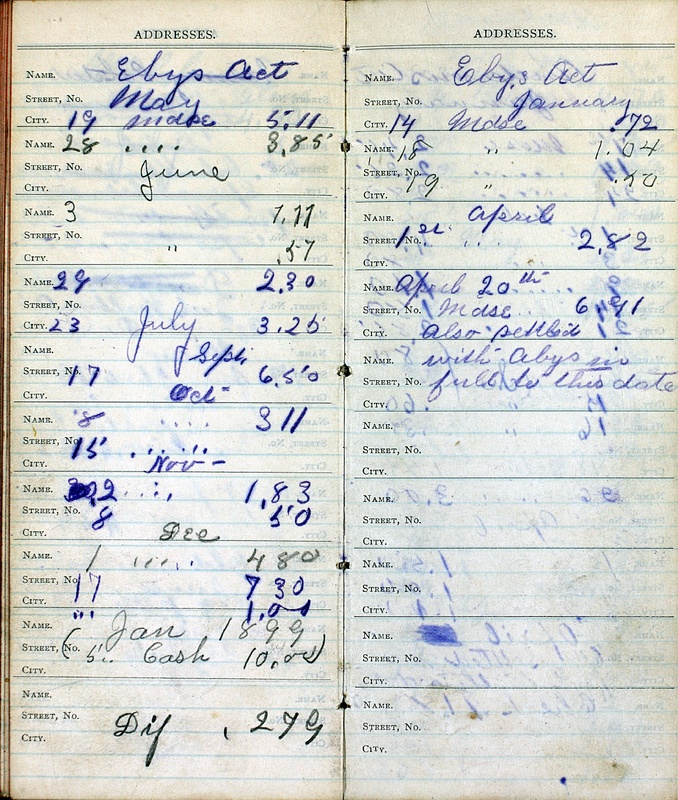 ADDRESSES.
NAME. Ebys Act
STREET, NO. May
CITY. 19 Mdse 5.11
NAME. 28 .... 3.85
STREET, NO. June
CITY.
NAME. 3 1.11
STREET, NO. " .57
CITY.
NAME. 29 2.30
STREET, NO. July
CITY. 23 3.25
NAME. Sept
STREET, NO. 17 6.50
CITY. Oct
NAME. 8 .... 3 11
STREET, NO. 15 ......
CITY. Nov -
NAME. 2 .... 1,83
STREET, NO. 8 50
CITY. Dec
NAME. 1 ..... 4 80
STREET, NO. 17 7 30
CITY. "" 1.00
NAME. Jan 1899
STREET, NO. ( 5.. Cash 10,00)
CITY.
NAME.
STREET, NO. Dif , 279
CITY.
ADDRESSES.
NAME. Eby,s Act
STREET, NO. January
CITY. 14 Mdse .72
NAME. 18 " 1.04
STREET, NO.
CITY. 19 " .50
NAME. April
STREET, NO. 1st .... 2,82
CITY.
NAME. April 20th
STREET, NO. Mdse... 6
CITY. also settled
NAME. with Abys in
STREET, NO. full to this date
CITY.
NAME.
STREET, NO.
CITY.
NAME.
STREET, NO.
CITY.
NAME.
STREET, NO.
CITY.
NAME.
STREET, NO.
CITY.
NAME.
STREET, NO.
CITY.